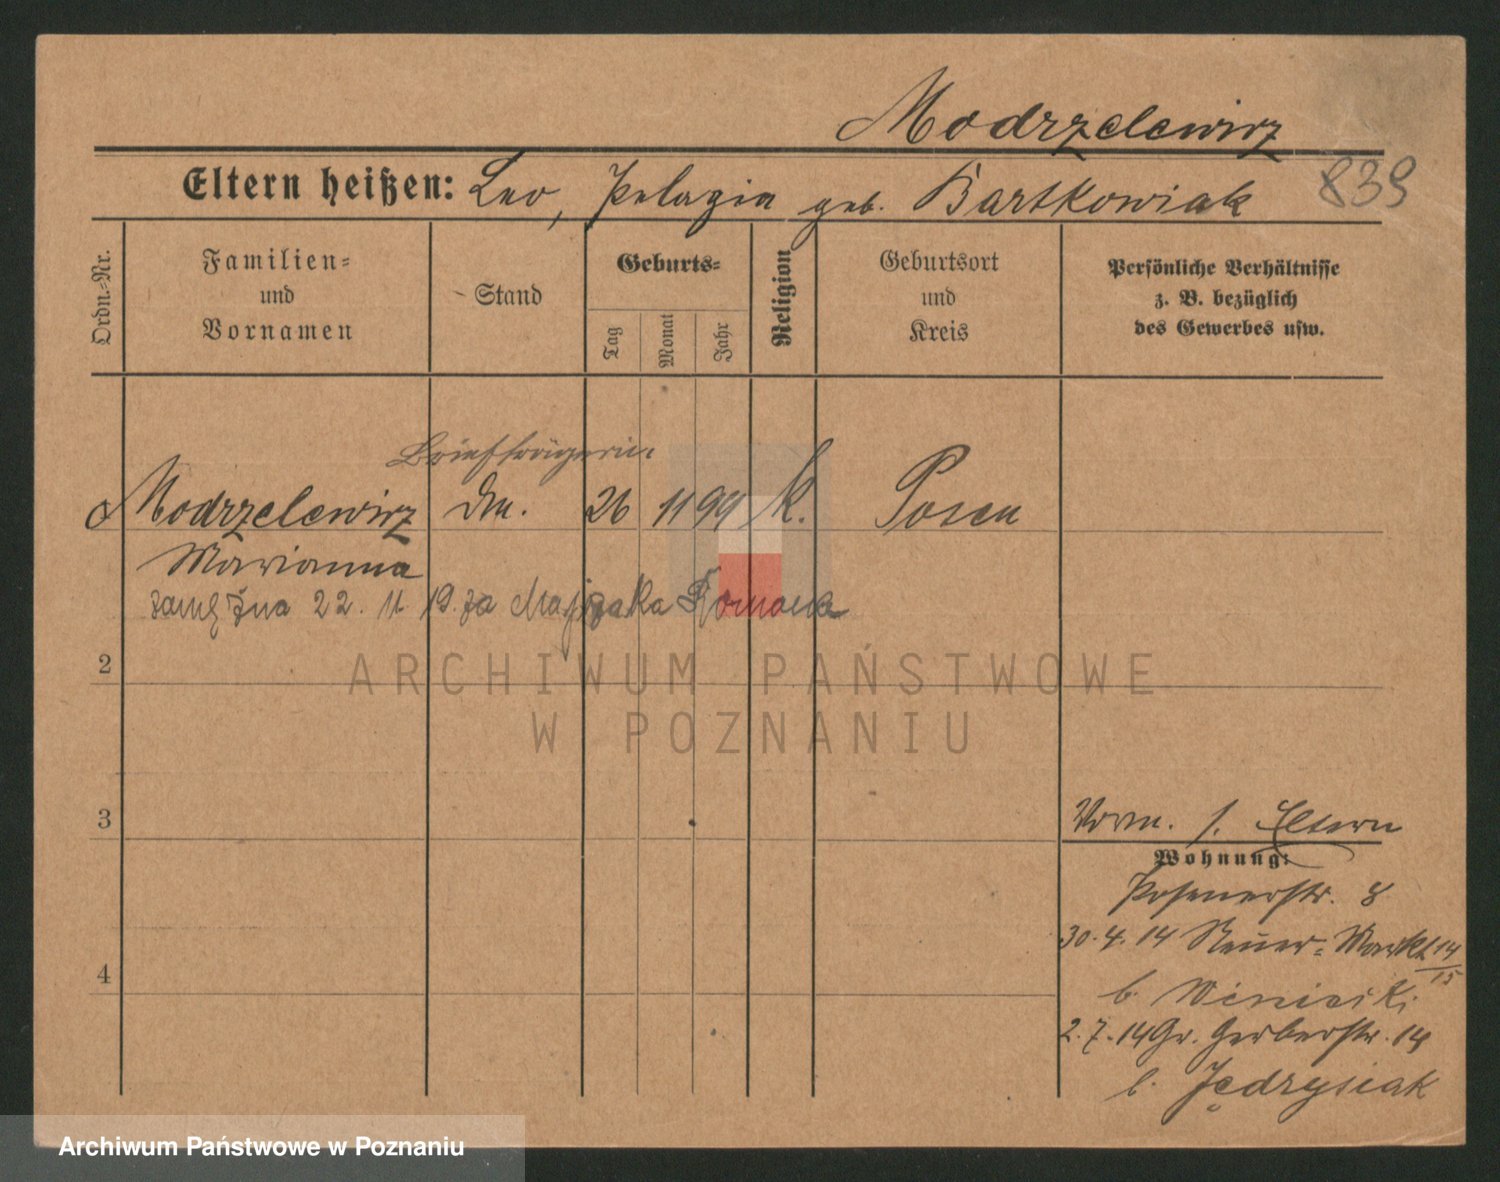 Modrzelewicz
Eltern heißen: Leo, Pelagia geb. Bartkowiak
839
Ordn.-Nr.
Familien-
und
Vornamen
Stand
Geburts-
Tag
Monat
Jahr
Religion
Geburtsort
und
Kreis
Persönliche Verhältnisse
z. B. bezüglich
des Gewerbes usw.
Briefträgerin
Modrzelewicz Dm. 26 11 99 K. Posen
Marianna
zamężna 22. 11. 19. za Majzaka Romana
2
ARCHIWUM PAŃSTWOWE
W POZNANIU
3
Vorm. s. Eltern
Wohnung:
Posenerstr. 8
30.4.14 Neuer-Markt 14/15
4
b.
2.7.14 Gr. Gerberstr. 14
b. Jędrysiak
Archiwum Państwowe w Poznaniu